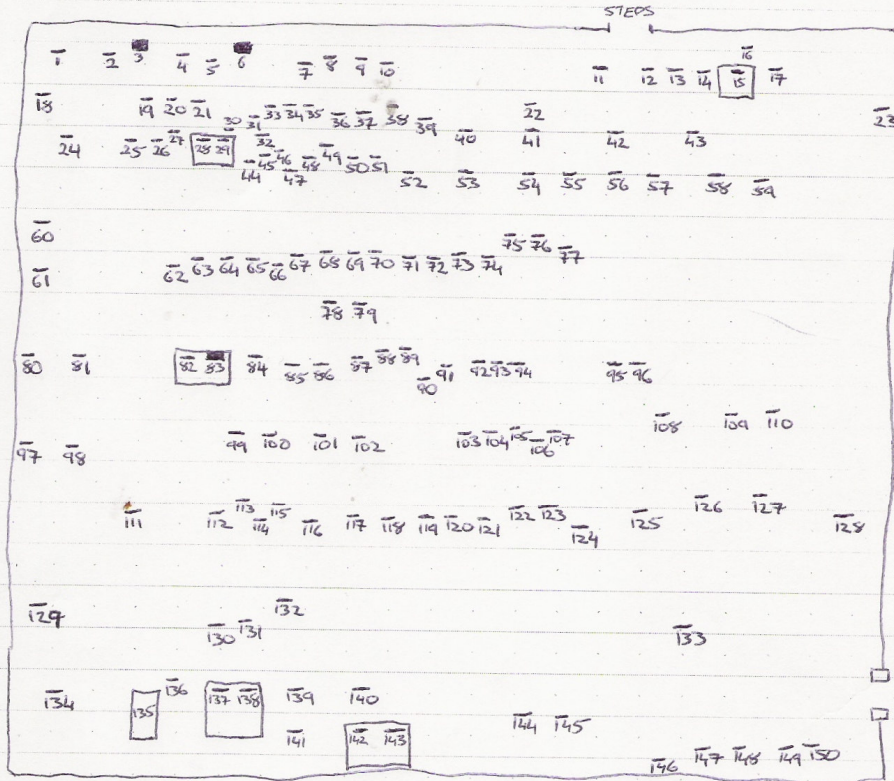 STEPS
1 2 3 4 5 6 7 8 9 10 11 12 13 14 15 16 17
18 19 20 21 22 23
24 25 26 27 28 29 30 31 32 33 34 35 36 37 38 39 40 41 42 43
44 45 46 47 48 49 50 51 52 53 54 55 56 57 58 59
60
61 62 63 64 65 66 67 68 69 70 71 72 73 74 75 76 77
78 79
80 81 82 83 84 85 86 87 88 89 90 91 92 93 94 95 96
97 98 99 100 101 102 103 104 105 106 107 108 109 110
111 112 113 114 115 116 117 118 119 120 121 122 123 124 125 126 127 128
129 130 131 132 133
134 135 136 137 138 139 140
141 142 143 144 145
146 147 148 149 150